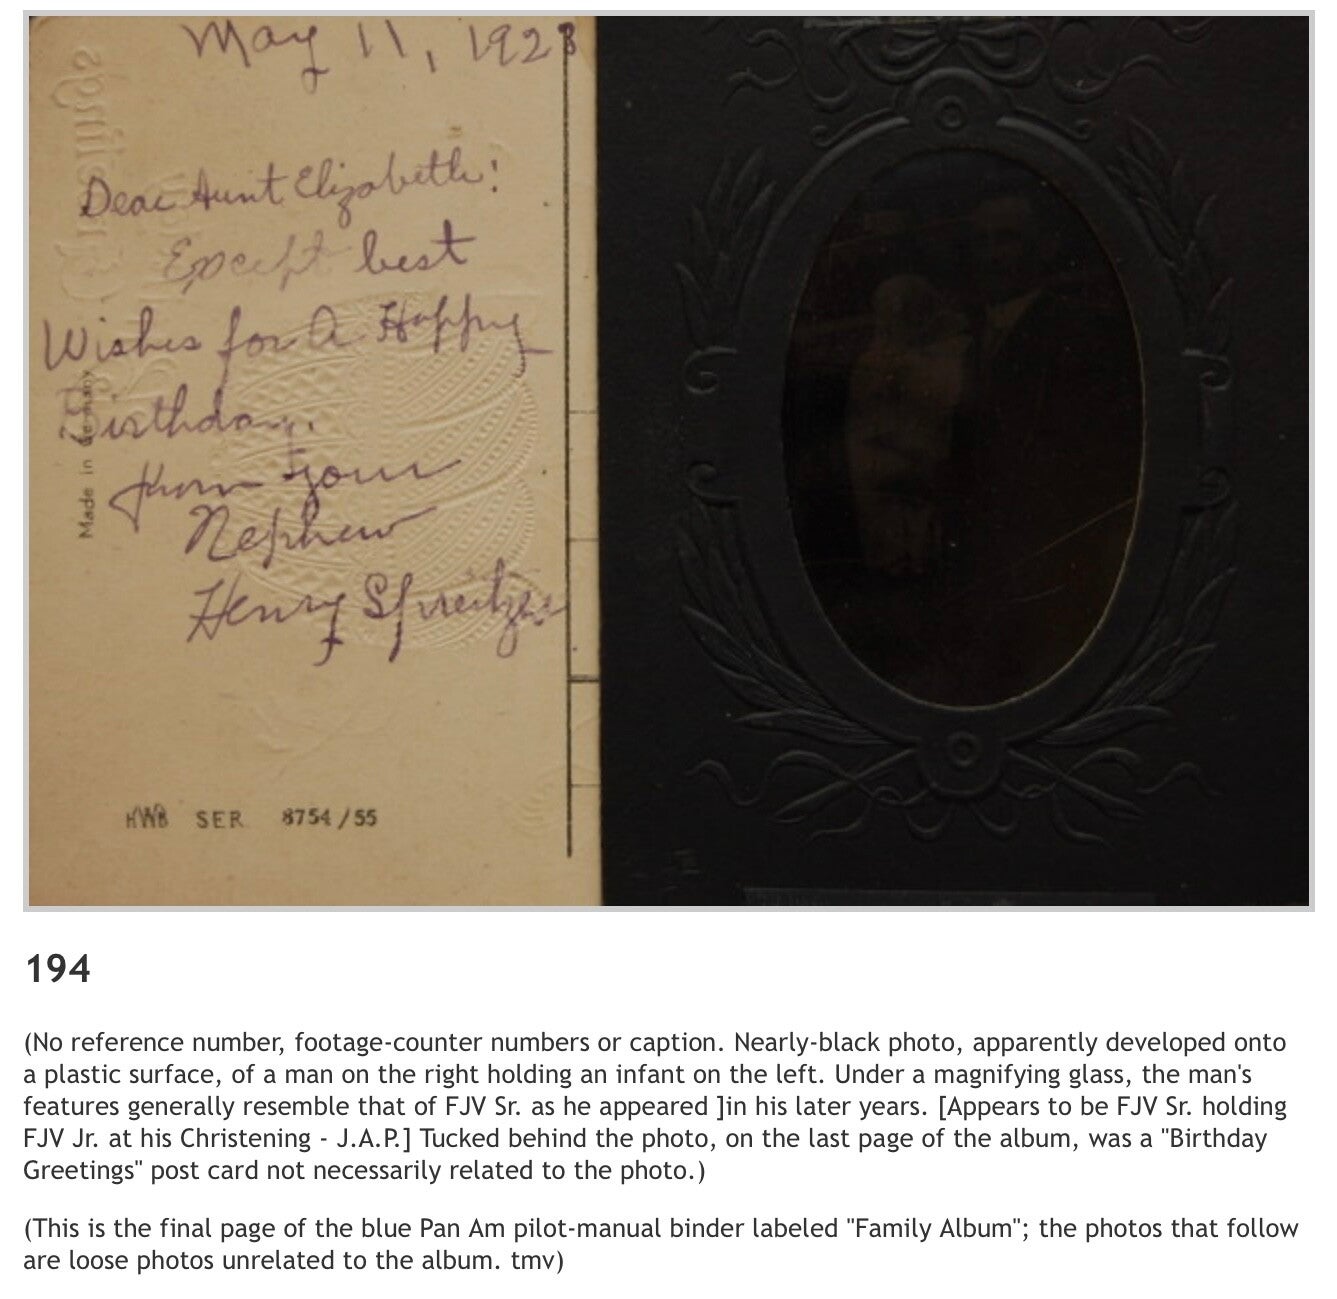 May 11, 1923
Dear Aunt Elizabeth!
Except best
Wishes for A Happy
Birthday.
from your
Nephew
Henry Spreitzer
Made in Germany
HWB SER 8754/55
194
(No reference number, footage-counter numbers or caption. Nearly-black photo, apparently developed onto
a plastic surface, of a man on the right holding an infant on the left. Under a magnifying glass, the man's
features generally resemble that of FJV Sr. as he appeared ]in his later years. [Appears to be FJV Sr. holding
FJV Jr. at his Christening - J.A.P.] Tucked behind the photo, on the last page of the album, was a "Birthday
Greetings" post card not necessarily related to the photo.)
(This is the final page of the blue Pan Am pilot-manual binder labeled "Family Album"; the photos that follow
are loose photos unrelated to the album. tmv)